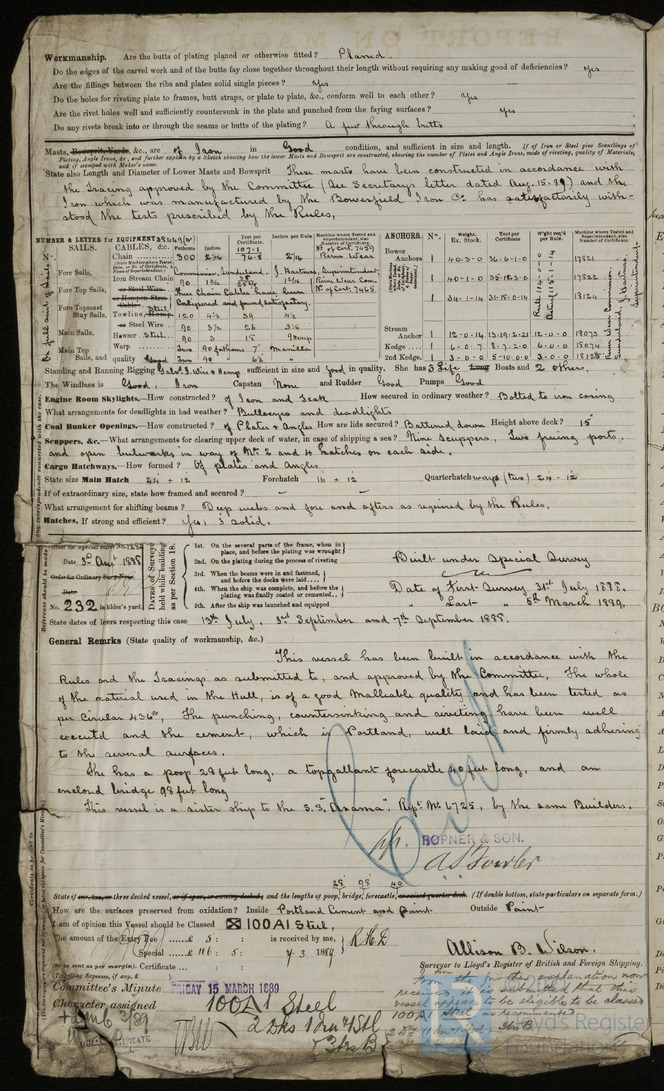 Workmanship. Are the butts of plating planed or otherwise fitted? Planed.
Do the edges of the carvel work and of the butts fay close together throughout their length without requiring any making good of deficiencies? Yes
Are the fillings between the ribs and plates solid single pieces? Yes
Do the holes for riveting plate to frames, butt straps, or plate to plate, &c., conform well to each other? Yes
Are the rivet holes well and sufficiently countersunk in the plate and punched from the faying surfaces? Yes
Do any rivets break into or through the seams or butts of the plating? A few through butts
Masts, Bowsprit, Yards, &c., are of Iron in Good condition, and sufficient in size and length. If of Iron or Steel give Scantlings of
Plating, Angle Irons, &c., and further explain by a Sketch showing how the lower Masts and Bowsprit are constructed, showing the number of Plates and Angle Irons, mode of riveting, quality of Materials,
and if stamped with Maker's name.
State also Length and Diameter of Lower Masts and Bowsprit These masts have been constructed in accordance with
the tracing approved by the Committee (See Secretary's letter dated Aug. 15. 88) and the
Iron which was manufactured by the Bowesfield Iron Co. has satisfactorily with-
stood the tests prescribed by the Rules,
NUMBER & LETTER for EQUIPMENT
SAILS.
CABLES, &c.
Fathoms
Inches.
Test per Certificate.
Inches per Rule
Machine where Tested and Superintendent, also Number of Certificate.
Chain 300 2 1/16 76.5 2 1/16 River Wear
Commission, Sunderland. J. Hartness, Superintendent,
Fore Sails,
Iron Stream Chain 90
River Wear Com.
No of Cert. 7465
Fore Top Sails,
or Steel Wire
or Hempen Strm Cable
Calipered and found satisfactory.
Fore Topmast
Stay Sails,
Towline, Hemp 120 4 1/2 39 4 1/2
or Steel Wire 90 3 1/2 26 3 1/2
Main Sails,
Hawser Steel 90 3 15 9 Hemp
Warp Two 90 fathoms 7" Manilla
Main Top
Sails, and
quality Good
ANCHORS.
No.
Weight. Ex. Stock.
Test per Certificate.
Wght req'd per Rule.
Machine where Tested and Superintendent, also Number of Certificate.
Bower Anchors 1 40.3.0 36.6.1.0 17821
1 40.1.0 35.18.3.0 17822
1 34.1.14 31.15.0.14 18124
Stream Anchor 1 12.0.14 13.19.2.21 12.0.0 18073
Kedge 1 6.0.7 8.7.2.0 6.0.0 18074
2nd Kedge. 1 3.0.0 5.10.0.0 3.0.0 18125
River Wear Commission.
Sunderland, J. Hartness,
Superintendent.
Standing and Running Rigging Galvd. I. Wire & Hemp sufficient in size and good in quality. She has 3 Life Long Boats and 2 others.
The Windlass is Good, Iron Capstan None and Rudder Good Pumps Good
Engine Room Skylights.—How constructed? of Iron and Teak How secured in ordinary weather? Bolted to iron casing
What arrangements for deadlights in bad weather? Bullseyes and deadlights
Coal Bunker Openings.—How constructed? of Plates & Angles How are lids secured? Battened down Height above deck? 15"
Scuppers, &c.—What arrangements for clearing upper deck of water, in case of shipping a sea? Nine Scuppers, Two freeing ports
and open bulwarks in way of No. 2 and 4 hatches on each side.
Cargo Hatchways.—How formed? Of plates and Angles
State size Main Hatch 24 + 12 Forehatch 16 + 12 Quarterhatchways (two) 24 - 12
If of extraordinary size, state how framed and secured? –
What arrangement for shifting beams? Deep webs and fore and afters as required by the Rules.
Hatches. If strong and efficient? Yes; 3" solid.
Order for Special Survey No. 1284
Date 3rd Augt 1888
Order for Ordinary Survey No.
Date
No. 232 in builder's yard.
Dates of Surveys held while building as per Section 18.
1st. On the several parts of the frame, when in place, and before the plating was wrought
2nd. On the plating during the process of riveting
3rd. When the beams were in and fastened, and before the decks were laid
4th. When the ship was complete, and before the plating was finally coated or cemented
5th. After the ship was launched and equipped
Built under Special Survey
Date of First Survey 31st July 1888.
" Last " 5th March 1889.
State dates of letters respecting this case 13th July, 3rd September and 7th September 1888.
General Remarks (State quality of workmanship, &c.)
This vessel has been built in accordance with the
Rules and the Tracings as submitted to, and approved by the Committee, The whole
of the material used in the Hull, is of a good Malleable quality and has been tested as
per Circular 436*, The punching, countersinking and riveting have been well
executd and the cement, which is Portland, well laid and firmly adhering
to the several surfaces.
She has a poop 28 feet long, a topgallant forecastle 40 feet long, and an
enclosed bridge 98 feet long
This vessel is a sister ship to the S.S. "Asama" Regt. No. 6725, by the same Builders.
pp. ROPNER & SON.
28 98 40
State if one, two, or three decked vessel, or if spar, or awning decked; and the lengths of poop, bridge, forecastle, or raised quarter deck. (If double bottom, state particulars on separate form.)
How are the surfaces preserved from oxidation? Inside Portland Cement and Paint. Outside Paint
I am of opinion this Vessel should be Classed 100A1 Steel,
The amount of the Entry Fee £ 5 : : is received by me, R.H.D
Special £ 116 : 5 : 7.3 1889
(to be sent as per margin). Certificate :
(Travelling Expenses, if any, £ )
Allison B. Wilson.
Surveyor to Lloyd's Register of British and Foreign Shipping.
Committee's Minute FRIDAY 15 MARCH 1889
Character assigned 100A1 Steel
2 Dks
received it is submitted that this
vessel appears to be eligible to be classed
100A1 Steel as recommended
Lloyd's Register
Foundation